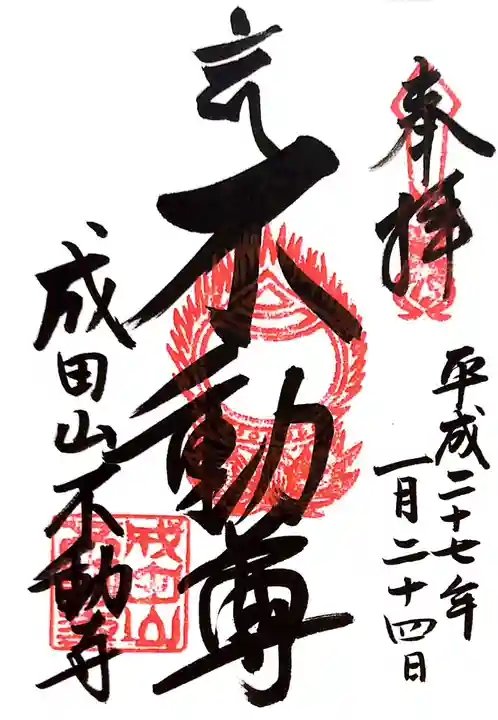 奉拝
平成二十七年
一月二十四日
不動尊
成田山不動寺
成田山